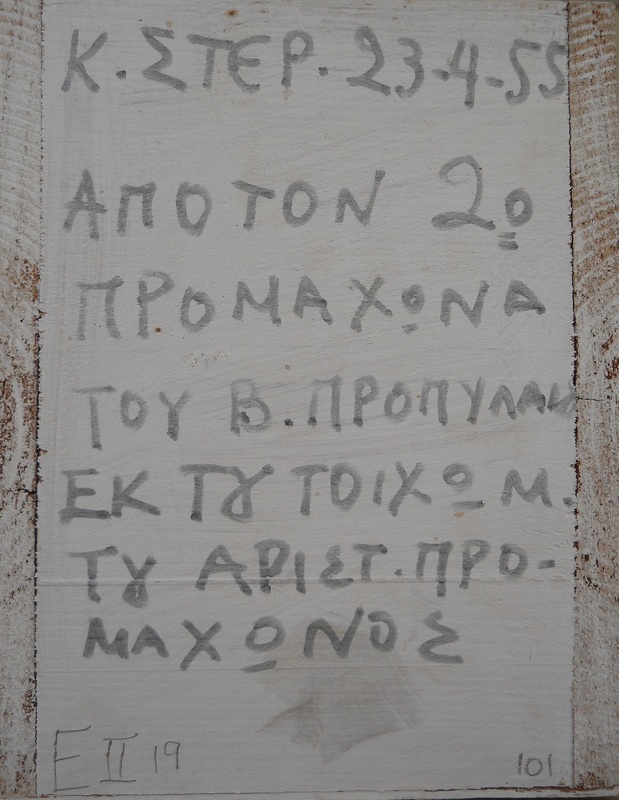 Κ. ΣΤΕΡ. 23-4-55
ΑΠΟ ΤΟΝ 2ο
ΠΡΟΜΑΧΩΝΑ
ΤΟΥ Β. ΠΡΟΠΥΛΑΙΟΥ
ΕΚ ΤȢ ΤΟΙΧΩΜ.
ΤȢ ΑΡΙΣΤ. ΠΡΟ-
ΜΑΧΩΝΟΣ
Ε II 19
101